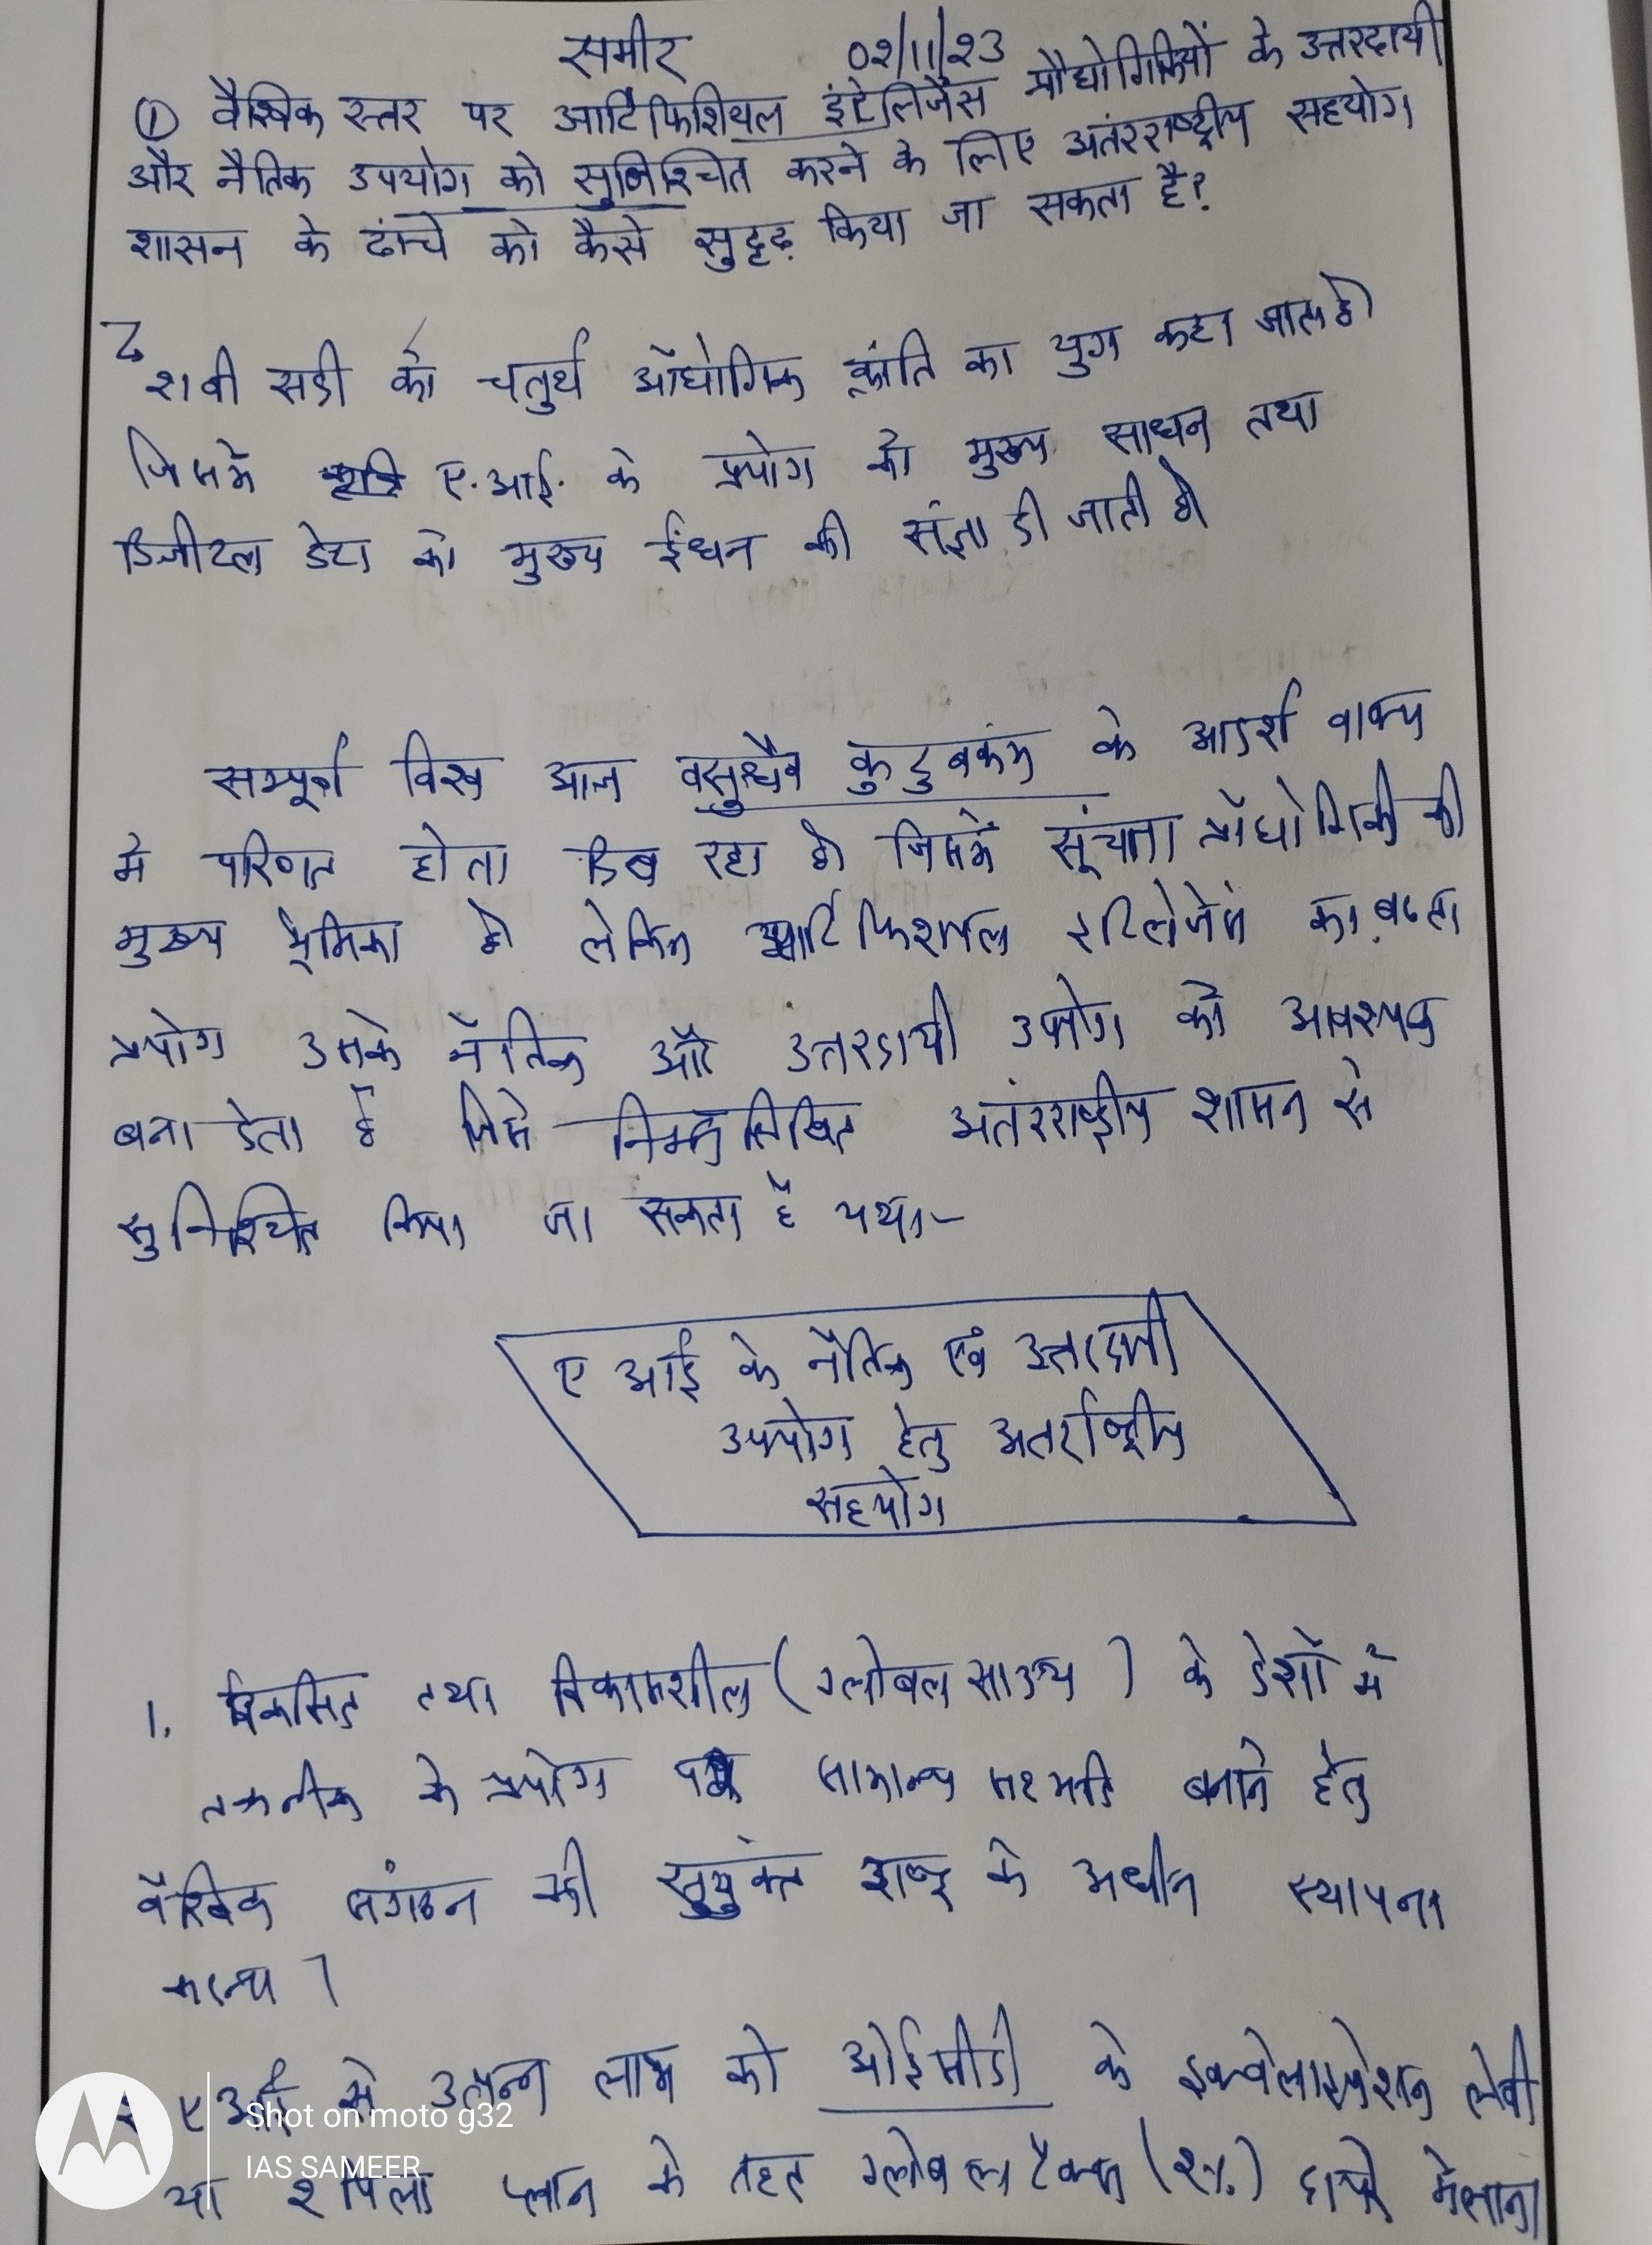 समीर 02/11/23
① वैश्विक स्तर पर आर्टिफिशियल इंटेलिजेंस प्रौद्योगिकियों के उत्तरदायी
और नैतिक उपयोग को सुनिश्चित करने के लिए अतंरराष्ट्रीय सहयोग
शासन के ढांचे को कैसे सुदृढ़ किया जा सकता है?
21वी सदी को चतुर्थ औद्योगिक क्रांति का युग कहा जाता है
जिसमे ए.आई. के प्रयोग को मुख्य साधन तथा
डिजीटल डेटा को मुख्य ईंधन की संज्ञा दी जाती है
सम्पूर्ण विश्व आज वसुधैव कुटुबकंम के आदर्श वाक्य
मे परिणत होता दिख रहा है जिसमें सूंचना प्रौद्योगिकी की
मुख्य भूमिका है लेकिन आर्टिफिशयल इटिलेजेंस का बढता
प्रयोग उसके नैतिक और उत्तरदायी उपयोग को आवश्यक
बना देता है जिसे निम्नलिखित अतंरराष्ट्रीय शासन से
सुनिश्चित किया जा सकता है यथा-
ए आई के नैतिक एवं उत्तरदायी
उपयोग हेतु अतर्राष्ट्रीय
सहयोग
1. विकसित तथा विकासशील (ग्लोबल साउथ) के देशों में
तकनीक के प्रयोग पर सामान्य सहमति बनाने हेतु
वैश्विक संगठन की सुयुंक्त राष्ट्र के अधीन स्थापना
करना।
2 ए आई से उत्पन्न लाभ को ओईसीडी के इक्वेलाइजेशन लेवी
या 2 पिलर प्लान के तहत ग्लोबल टैक्स (2%) दायरे में लाना
Shot on moto g32
IAS SAMEER